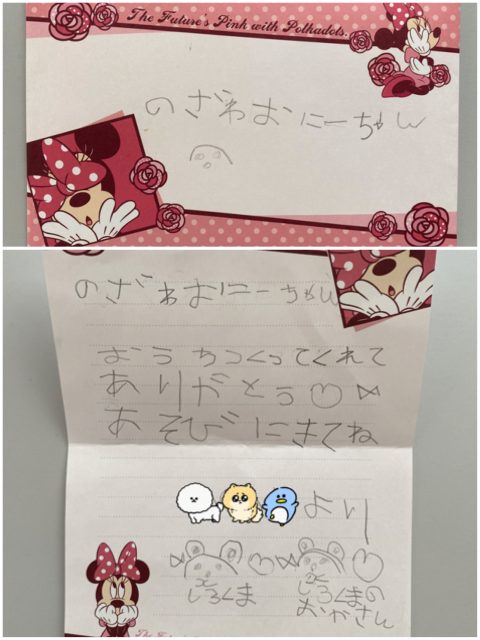 The Future's Pink with Polkadots.
のざわおにーちゃん
のざわおにーちゃん
おうちつくってくれて
ありがとう♡
あそびにきてね
より
しろくま
しろくまの
おかさん
The Future's Pink with